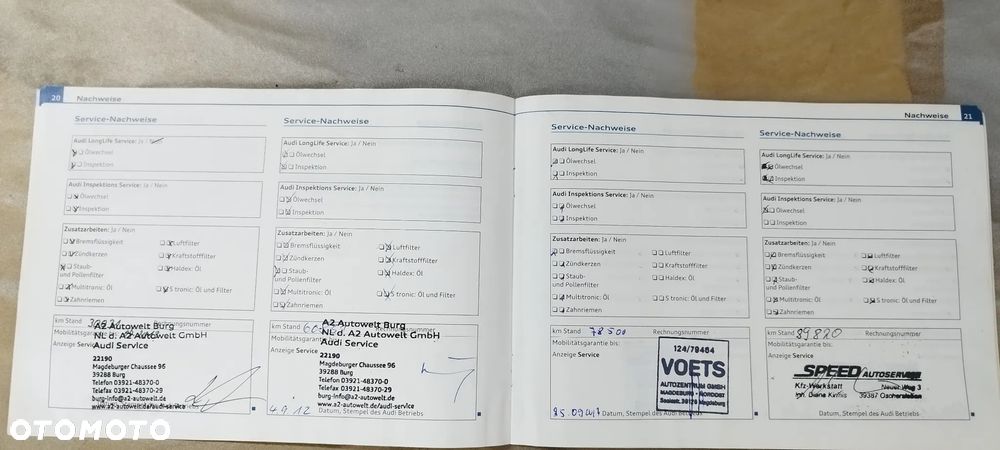 20 Nachweise
Service-Nachweise
Audi LongLife Service: Ja / Nein
Ölwechsel
Inspektion
Audi Inspektions Service: Ja / Nein
Ölwechsel
Inspektion
Zusatzarbeiten: Ja / Nein
Bremsflüssigkeit
Luftfilter
Zündkerzen
Kraftstofffilter
Staub-
und Pollenfilter
Haldex: Öl
Multitronic: Öl
S tronic: Öl und Filter
Zahnriemen
km Stand
Rechnungsnummer
Mobilitätsgarantie
Anzeige Service
A2 Autowelt Burg
NL d. A2 Autowelt GmbH
Audi Service
22190
Magdeburger Chaussee 96
39288 Burg
Telefon 03921-48370-0
Telefax 03921-48370-29
burg-info@a2-autowelt.de
www.a2-autowelt.de/audi-service
Service-Nachweise
Audi LongLife Service: Ja / Nein
Ölwechsel
Inspektion
Audi Inspektions Service: Ja / Nein
Ölwechsel
Inspektion
Zusatzarbeiten: Ja / Nein
Bremsflüssigkeit
Luftfilter
Zündkerzen
Kraftstofffilter
Staub-
und Pollenfilter
Haldex: Öl
Multitronic: Öl
S tronic: Öl und Filter
Zahnriemen
km Stand
Rechnungsnummer
Mobilitätsgarantie
Anzeige Service
A2 Autowelt Burg
NL d. A2 Autowelt GmbH
Audi Service
22190
Magdeburger Chaussee 96
39288 Burg
Telefon 03921-48370-0
Telefax 03921-48370-29
burg-info@a2-autowelt.de
www.a2-autowelt.de/audi-service
4.9.12
Datum, Stempel des Audi Betriebs
Nachweise 21
Service-Nachweise
Audi LongLife Service: Ja / Nein
Ölwechsel
Inspektion
Audi Inspektions Service: Ja / Nein
Ölwechsel
Inspektion
Zusatzarbeiten: Ja / Nein
Bremsflüssigkeit
Luftfilter
Zündkerzen
Kraftstofffilter
Staub-
und Pollenfilter
Haldex: Öl
Multitronic: Öl
S tronic: Öl und Filter
Zahnriemen
km Stand 78500 Rechnungsnummer
Mobilitätsgarantie bis:
Anzeige Service
124/79454
VOETS
AUTOZENTRUM GMBH
MAGDEBURG - NORDOST
Magdeburg
Datum, Stempel des Audi Betriebs
Service-Nachweise
Audi LongLife Service: Ja / Nein
Ölwechsel
Inspektion
Audi Inspektions Service: Ja / Nein
Ölwechsel
Inspektion
Zusatzarbeiten: Ja / Nein
Bremsflüssigkeit
Luftfilter
Zündkerzen
Kraftstofffilter
Staub-
und Pollenfilter
Haldex: Öl
Multitronic: Öl
S tronic: Öl und Filter
Zahnriemen
km Stand 89820 Rechnungsnummer
Mobilitätsgarantie bis:
Anzeige Service
SPEED AUTOSERVICE
Kfz-Werkstatt Neuer Weg 3
Inh. Diana Kirmis 39387 Oschersleben
Datum, Stempel des Audi Betriebs
OTOMOTO